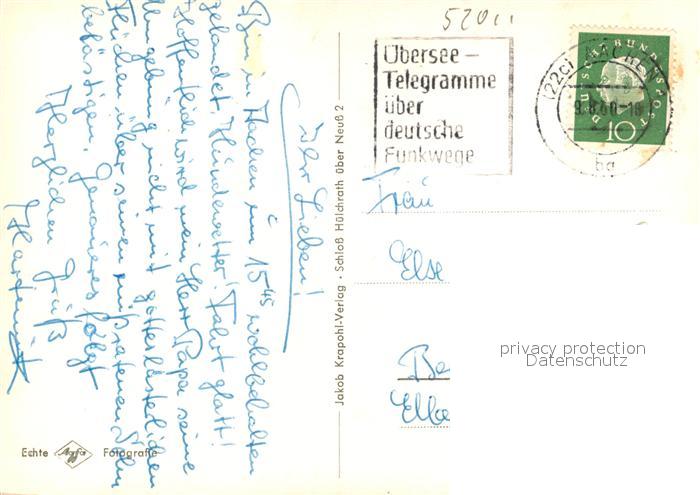 5201
Übersee-
Telegramme
über
deutsche
Funkwege
(22c) AACHEN
9.8.60-18
ba
DEUTSCHE BUNDESPOST
10
Ihr Lieben!
Bin in Aachen um 15 45 wohlbehalten
gelandet. Hünderatter! Fahrt glatt!
Hoffentlich wird mein Herr Papa seine
Umgebung nicht mit gotteslästerlichen
Flüchen über seinen mißratenen Sohn
belästigen. Genaueres folgt
Herzlichen Gruß
Hartmut
Jakob Krapohl-Verlag · Schloß Hülchrath über Neuß 2
Frau
Else
Be
Elbe
privacy protection
Datenschutz
Echte Agfa Fotografie